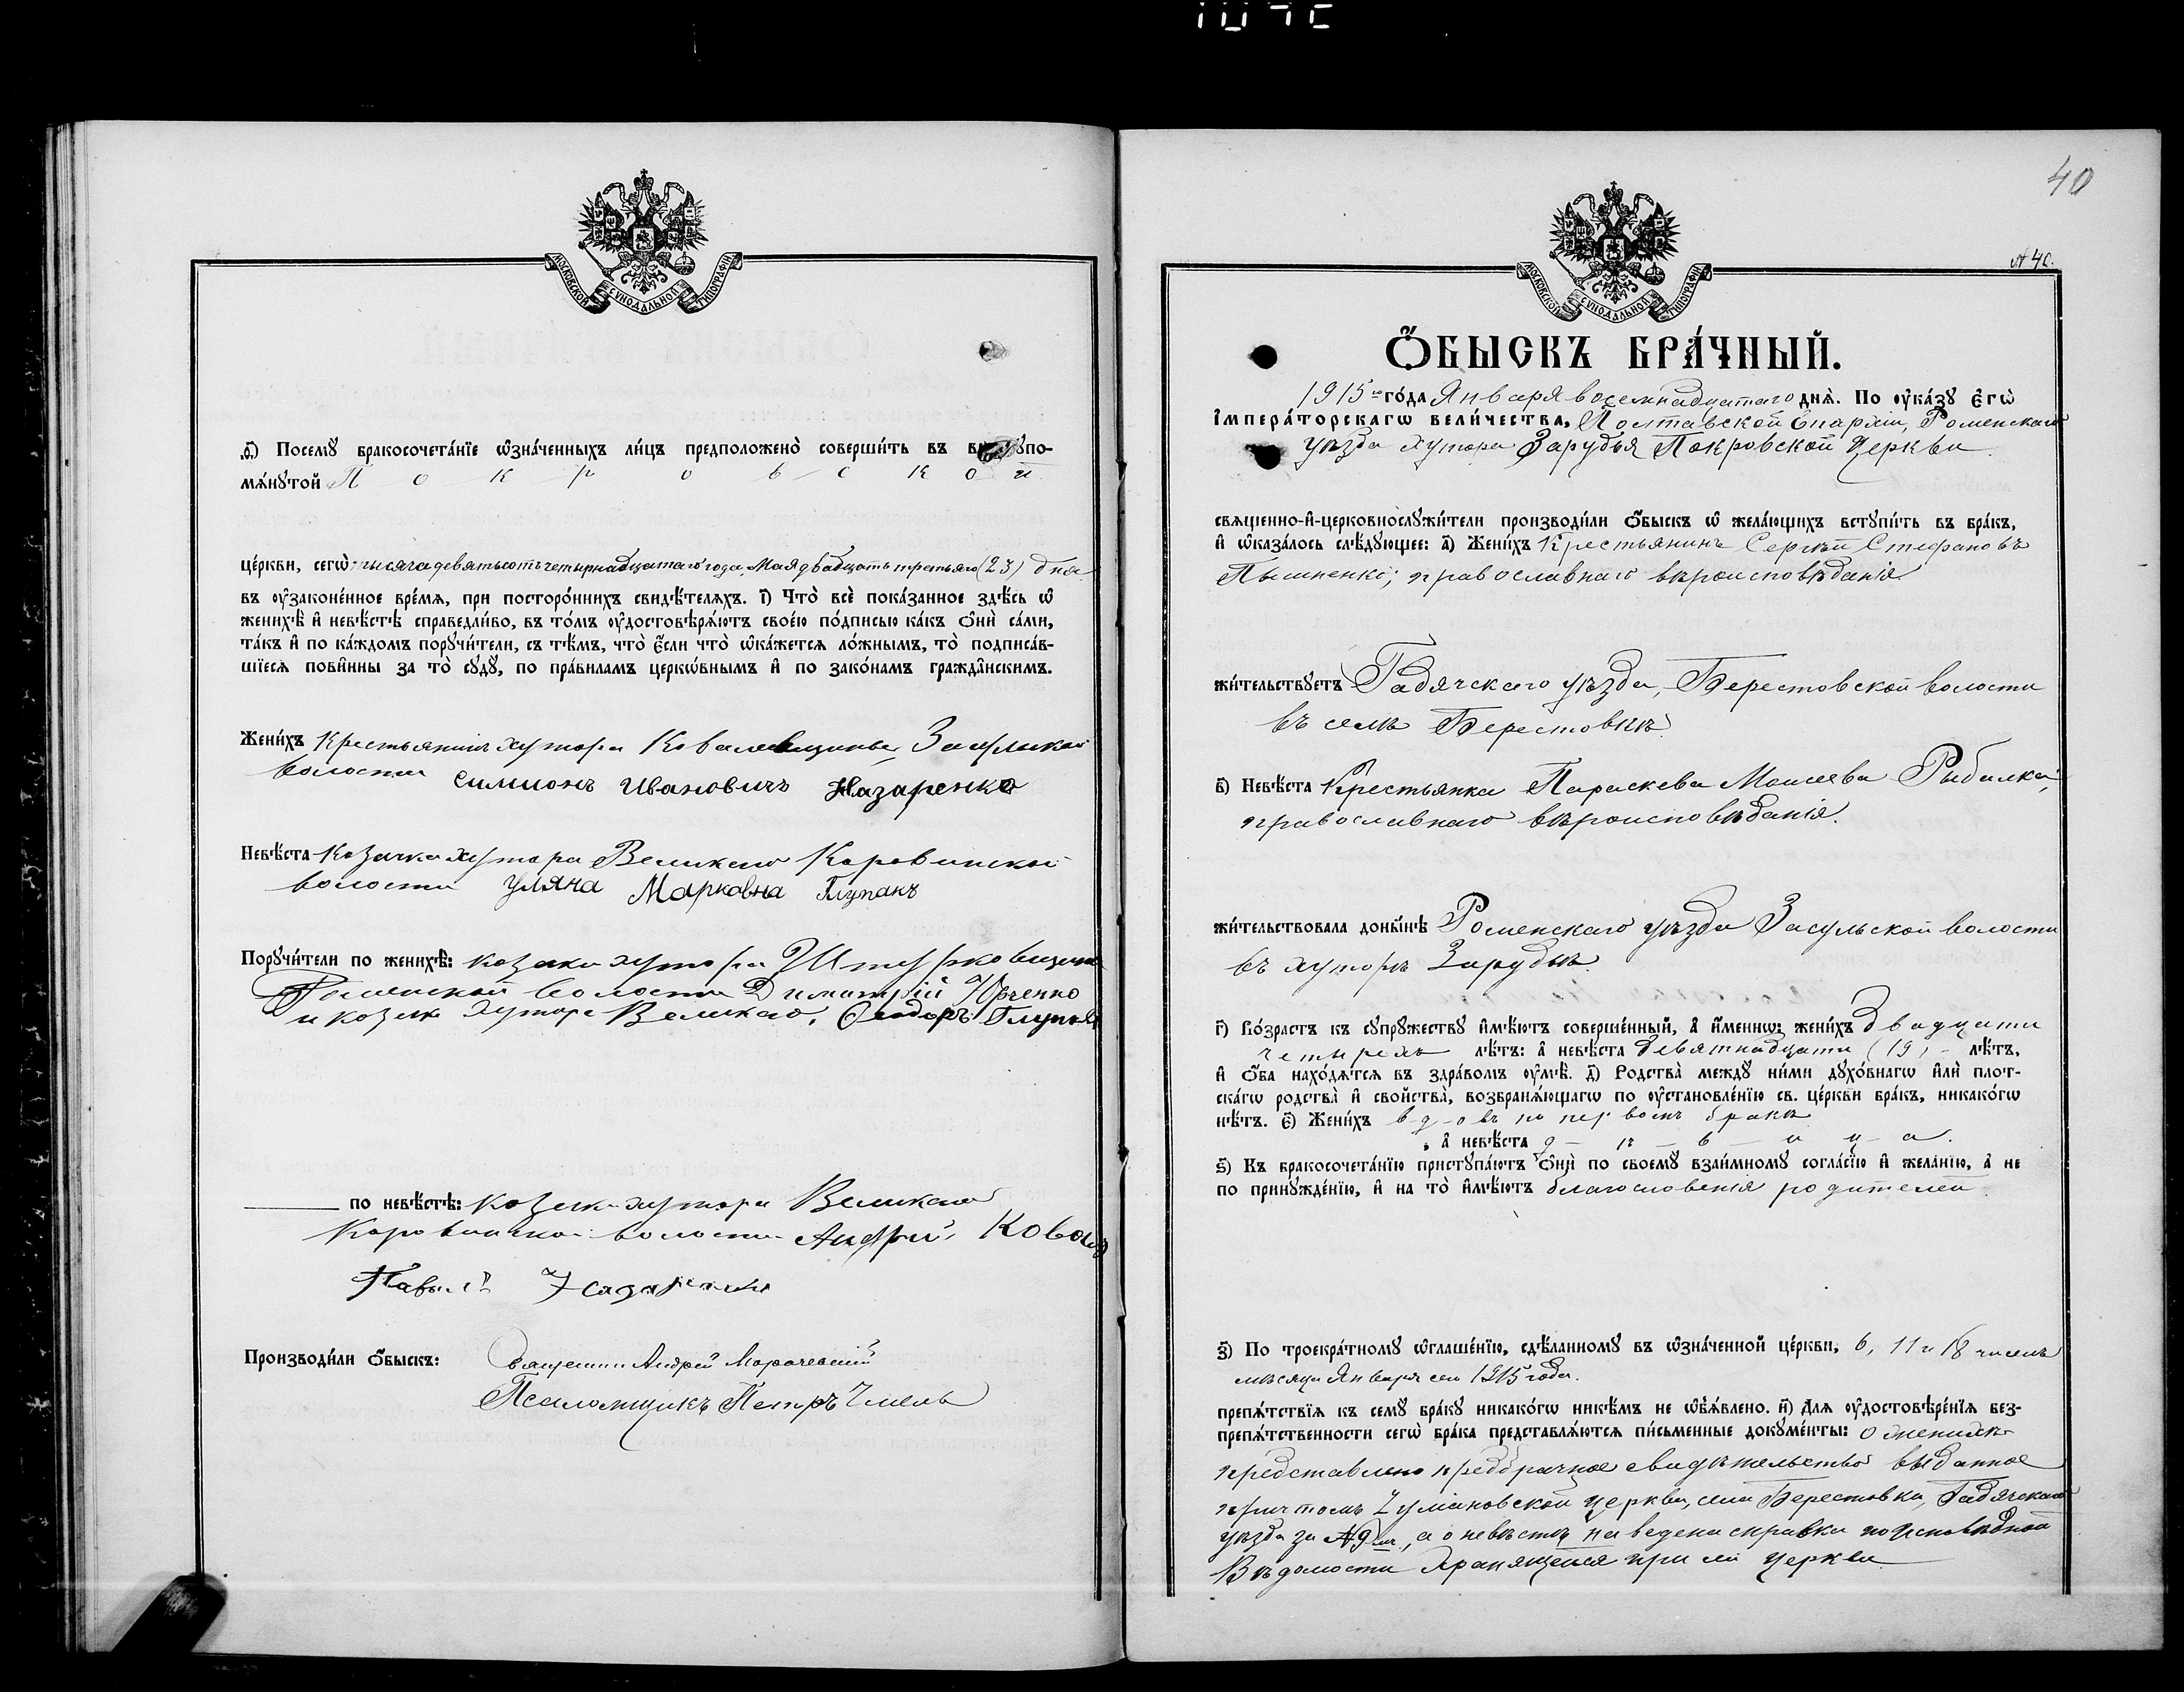 МОСКОВСКОЙ СУНОДАЛЬНОЙ ТИПОГРАФІИ
ѳ҃) Посемꙋ бракосочета́нїе ѡ҆зна́ченныхъ ли́цъ предположено̀ соверши́ть въ
мѧ́нꙋтой Покровской
це́ркви, сегѡ̀ тысяча девятьсотъ четырнадцатаго года, Мая двадцать третьяго (23) дня
въ ᲂу҆законе́нное вре́мѧ, при посторо́ннихъ свидѣ́телѧхъ. і҃) Что̀ всѐ пока́занное здѣ́сь ѡ҆
женихѣ̀ и҆ невѣ́стѣ справедли́во, въ то́мъ ᲂу҆достовѣрѧ́ютъ свое́ю по́дписью ка́къ ѻ҆нѝ са́ми,
та́къ и҆ по ка́ждомъ порꙋчи́тели, съ тѣ́мъ, что̀ є҆́сли что̀ ѡ҆ка́жетсѧ ло́жнымъ, то̀ подписа́в-
шїесѧ пови́нны за то̀ сꙋдꙋ̀, по пра́виламъ церкѡ́внымъ и҆ по зако́намъ гражда̑нскимъ.
Жени́хъ Крестьянинъ хутора Ковалевщины, Засульской
волости Симионъ Ивановичъ Назаренко
Невѣ́ста Козачка хутора Великаго Коровинской
волости Уляна Марковна Глупакъ
Порꙋчи́тели по женихѣ̀: козаки хутора
Роменской волости Димитрій Юрченко
и козакъ хутора Великаго, Ѳеодоръ
по невѣ́стѣ: козаки хутора Великаго
Коровинской волости Андрій
Производи́ли ѻ҆́быскъ: Священникъ Андрей
Псаломщикъ Петръ
40
МОСКОВСКОЙ СУНОДАЛЬНОЙ ТИПОГРАФІИ
№ 40.
Ѻ҆́БЫСКЪ БРА́ЧНЫЙ.
1915го го́да Января восемнадцатаго днѧ̀. По ᲂу҆ка́зꙋ Є҆гѡ̀
І҆мпера́торскагѡ вели́чества, Полтавской Епархіи, Роменскаго
уѣзда хутора Зарудья Покровской Церкви
свѧщенно-и҆-церковнослꙋжи́тели производи́ли ѻ҆́быскъ ѡ҆ жела́ющихъ встꙋпи́ть въ бра́къ,
и҆ ѡ҆каза́лось слѣ́дꙋющее: а҃) Жени́хъ Крестьянинъ Сергѣй Стефановъ
православнаго вѣроисповѣданія
жи́тельствꙋетъ Гадячскаго уѣзда, Берестовской волости
въ селѣ Берестовкѣ.
в҃) Невѣ́ста Крестьянка Параскева Моисеева Рыбалка,
православнаго вѣроисповѣданія.
жи́тельствовала доны́нѣ Роменскаго уѣзда Засульской волости
въ хуторѣ Зарудьѣ.
г҃) Во́зрастъ къ сꙋпрꙋ́жествꙋ и҆мѣ́ютъ соверше́нный, а҆ и҆́меннѡ: жени́хъ двадцати
четырехъ лѣ́тъ: а҆ невѣ́ста девятнадцати (19) лѣ́тъ,
и҆ ѻ҆́ба нахо́дѧтсѧ въ здра́вомъ ᲂу҆мѣ̀. д҃) Родства̀ междꙋ ни́ми дꙋхо́внагѡ и҆лѝ плот-
ска́гѡ родства̀ и҆ сво́йства̀, возбранѧ́ющагѡ по ᲂу҆становле́нїю св. це́ркви бра́къ, никако́гѡ
нѣ́тъ. є҃) Жени́хъ вдовъ по первомъ бракѣ
, а҆ невѣ́ста дѣвица.
ѕ҃) Къ бракосочета́нїю пристꙋпа́ютъ ѻ҆нѝ по своемꙋ̀ взаи́мномꙋ согла́сїю и҆ жела́нїю, а҆ не
по принꙋжде́нїю, и҆ на то̀ и҆мѣ́ютъ благословенія родителей.
з҃) По троекра́тномꙋ ѡ҆глаше́нїю, сдѣ́ланномꙋ въ ѡ҆зна́ченной це́ркви, 6, 11 и 18 числъ
мѣсяца Января сего 1915 года.
препѧ́тствїѧ къ семꙋ̀ бра́кꙋ никако́гѡ никѣ́мъ не ѡ҆б̾ѧ́влено. и҃) Длѧ ᲂу҆достовѣре́нїѧ без-
препѧ́тственности сегѡ̀ бра́ка представлѧ́ютсѧ пи́сьменные докꙋме́нты: о женихѣ
представлено предбрачное свидѣтельство выданное
причтомъ церкви, села Берестовки, Гадячскаго
уѣзда за № 9, а о невѣстѣ наведена справка по исповѣдной
Вѣдомости хранящейся при сей церкви